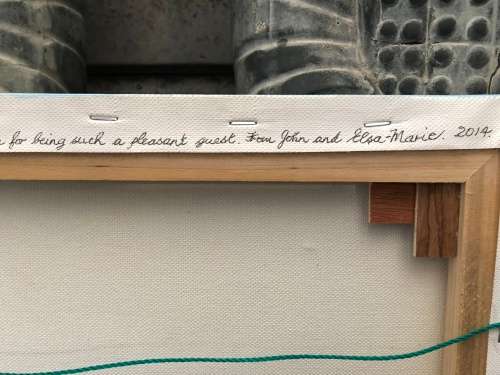 for being such a pleasant guest. From John and Elsa-Marie. 2014